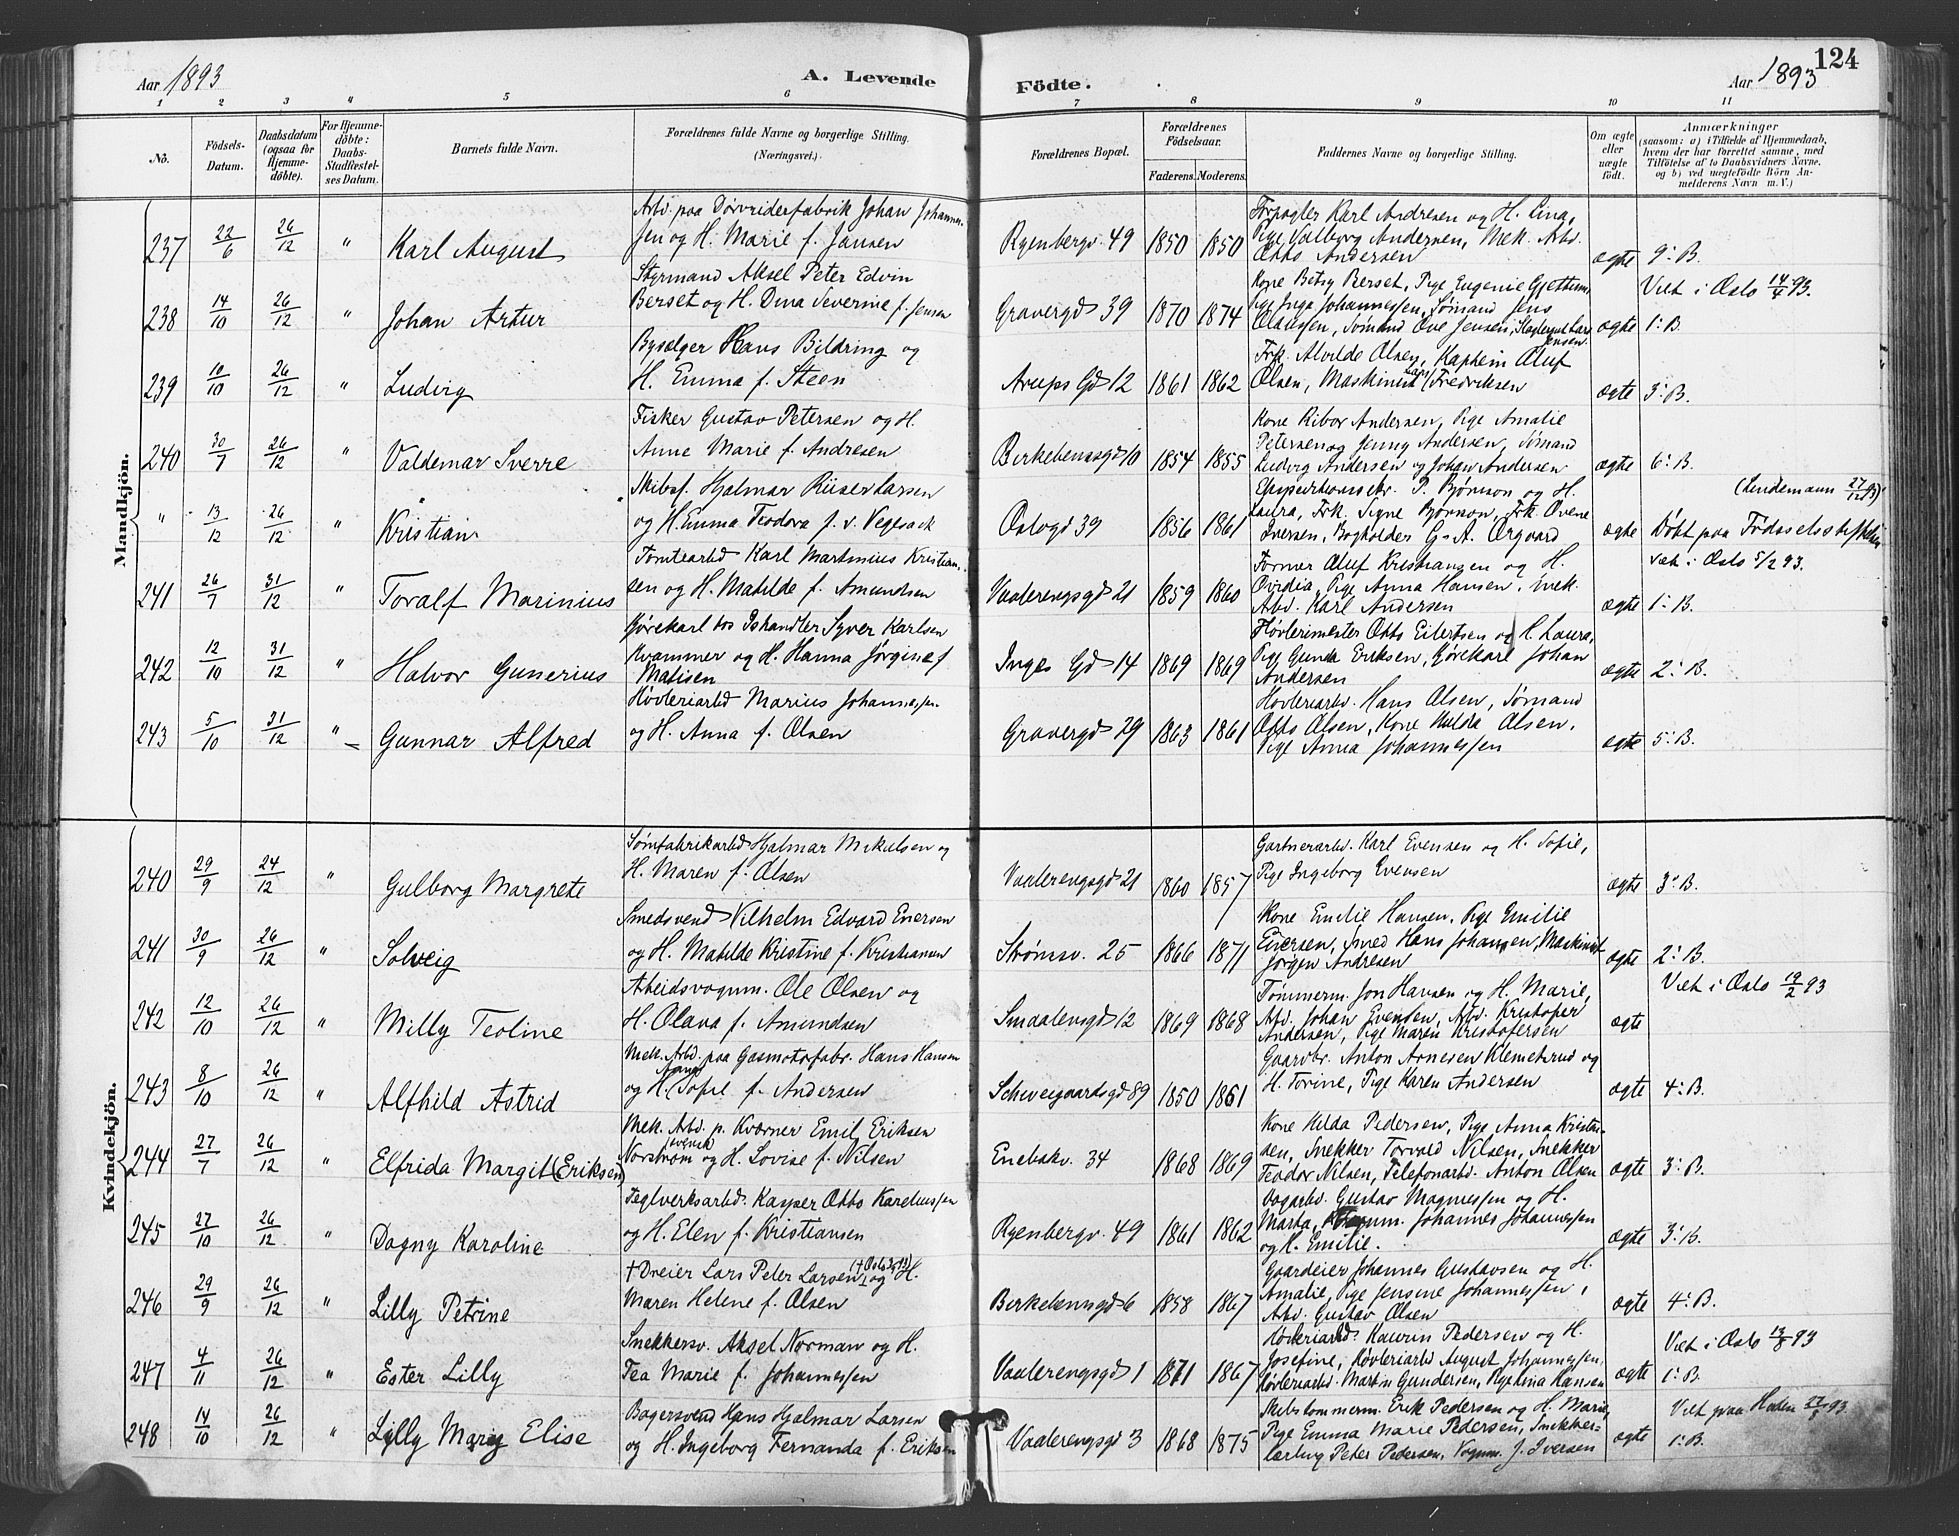 124
Aar 1893
A. Levende
Födte.
Aar 1893
1 2 3 " 5 6 7 8 9 10 11
No.
Födsels-Datum.
Daabsdatum (ogsaa for Hjemmedöbte).
For Hjemmedöbte: Daabs-Stadfæstelses Datum.
Barnets fulde Navn.
Forældrenes fulde Navne og borgerlige Stilling. (Næringsvei.)
Forældrenes Bopæl.
Forældrenes Födselsaar.
Faderens. Moderens.
Faddernes Navne og borgerlige Stilling.
Om ægte eller uægte födt.
Anmærkninger
(saasom: a) i Tilfælde af Hjemmedaab, hvem der har forrettet samme, med Tilföielse af to Daabsvidners Navne, og b) ved uegtefödte Börn Anmelderens Navn m. V.)
Mandkjön.
237 22/6 26/12 " Karl August
Arb. paa Dørvriderfabrik Johan Johannessen og H. Marie f. Jansen
Ryenbergv. 49 1850 1850
Forpagter Karl Andresen og H. Lina,
Pige Valborg Andersen, Mek. Arb.
Otto Andersen
ægte 9: B.
238 14/10 26/12 " Johan Artur
Styrmand Aksel Peter Edvin
Berset og H. Dina Severine f. Jensen
Gravergd 39 1870 1874
Kone Betsy Berset, Pige Eugenie Gjettum,
Pige Inga Johannessen, Sømand Jens
Olaussen, Sømand Ove Jensen,
ægte Viet i Oslo 14/4 93.
1: B.
239 10/10 26/12 " Ludvig
Bysælger Hans Bildring og
H. Emma f. Steen
Arups Gd 12 1861 1862
Frk. Alvilde Olsen, Kaptein Oluf
Olsen, Maskinist Lars Fredriksen
ægte 3: B.
240 30/7 26/12 " Valdemar Sverre
Fisker Gustav Petersen og H.
Anne Marie f. Andresen
Birkebensgd 10 1854 1855
Kone Ribor Andersen, Pige Amalie
Petersen og Jenny Andersen, Sømand
Ludvig Andersen og Johan Andersen
ægte 6: B.
" 13/12 26/12 " Kristian
Skibsf. Hjalmar Riiser Larsen
og H. Emma Teodora f. v. Vegesack
Oslogd 39 1856 1861
Expeditionssekr. P. Bjørnson og H.
Laura, Frk. Signe Bjørnson, Frk. Ovene
Iversen, Bogholder G. A. Ørgaard
ægte (Lindemann 27/12 93)
Døbt paa Fødselsstiftelsen
241 26/7 31/12 " Toralf Marinius
Tomtearbd Karl Martinius Kristiansen og H. Matilde f. Amundsen
Vaalerengsgd 21 1859 1860
Former Oluf Kristiansen og H.
Ovidia, Pige Anna Hansen, mek.
Arb. Karl Andersen
ægte viet i Oslo 5/2 93.
1: B.
242 12/10 31/12 " Halvor Gunerius
Kjørekarl hos Ishandler Syver Karlsen
Kvammer og H. Hanna Jørgine f.
Matisen
Inges Gd 14 1869 1869
Høvlerimester Otto Eilertsen og H. Laura,
Pige Gunda Eriksen, Kjørekarl Johan
Andersen
ægte 2: B.
243 5/10 31/12 " Gunnar Alfred
Høvleriarbd Marius Johannessen
og H. Anna f. Olsen
Gravergd 29 1863 1861
Høvleriarb. Hans Olsen, Sømand
Otto Olsen, Kone Hulda Olsen,
Pige Anna Johannessen
ægte 5: B.
Kvindekjön.
240 29/9 24/12 " Gulborg Margrete
Sømfabrikarbd Hjalmar Mikalsen og
H. Maren f. Olsen
Vaalerengsgd 21 1860 1857
Gartnerarb. Karl Evensen og H. Sofie,
Pige Ingeborg Evensen
ægte 3: B.
241 30/9 26/12 " Solveig
Smedsvend Vilhelm Edvard Enersen
og H. Matilde Kristine f. Kristiansen
Strømsv. 25 1866 1871
Kone Emilie Hansen, Pige Emilie
Eversen, Smed Hans Johansen, Maskinist
Jørgen Andresen
ægte 2: B.
242 12/10 26/12 " Milly Teoline
Arbeidsvognm. Ole Olsen og
H. Olava f. Amundsen
Smaalensgd 12 1869 1868
Tømmerm. Jon Hansen og H. Marie,
Arb. Johan Evensen, Arb. Kristofer
Andersen, Pige Maren Kristofersen
ægte Viet i Oslo 19/2 93
243 8/10 26/12 " Alfhild Astrid
Mek. Arbd. paa Gasmotorfabr. Hans Hansen
og H. Sofie f. Andersen
Schweigaardsgd 89 1850 1861
Gaardbr. Anton Arnesen Klemetsrud og
H. Torine, Pige Karen Andersen
ægte 4: B.
244 27/7 26/12 " Elfrida Margit (Eriksen)
Mek. Arb. p. Kværner Emil Eriksen
Norstrøm svensk og H. Lovise f. Nilsen
Enebakv. 34 1868 1869
Kone Hilda Pedersen, Pige Anna Kristiansen, Snekker Torvald Nilsen, Snekker
Teodor Nilsen, Telefonarbd. Anton Olsen
ægte 3: B.
245 27/10 26/12 " Dagny Karoline
Teglverksarbd. Kasper Otto Kareliussen
og H. Elen f. Kristiansen
Ryenbergv. 49 1861 1862
Vogarb. Gustav Magnussen og H.
Marta, Vognm. Johannes Johannessen
og H. Emilie.
ægte 3: B.
246 29/9 26/12 " Lilly Petrine
† Dreier Lars Peter Larsen og H.
Maren Helene f. Olsen
Birkebensgd 6 1858 1867
Gaardeier Johannes Gustavsen og H.
Amalie, Pige Jensine Johannessen,
Arb. Gustav Olsen
ægte 4: B.
247 4/11 26/12 " Ester Lilly
Snekkersv. Aksel Norman og H.
Tea Marie f. Johannessen
Vaalerengsgd 1 1871 1867
Høvleriarbd. Laurin Pedersen og H.
Josefine, Høvleriarbd August Johannessen,
Høvleriarbd. Martin Gundersen, Pige Lina Hansen
ægte Viet i Oslo 13/8 93
1: B.
248 14/10 26/12 " Lilly Marie Elise
Bagersvend Hans Hjalmar Larsen
og H. Ingeborg Fernanda f. Eriksen
Vaalerengsgd 3 1868 1875
Skibstømmerm. Erik Pedersen og H. Marie,
Pige Emma Marie Pedersen, Snekkerlærling Peter Pedersen, Vognm. J. Iversen
ægte Viet paa 27/5 93
1: B.